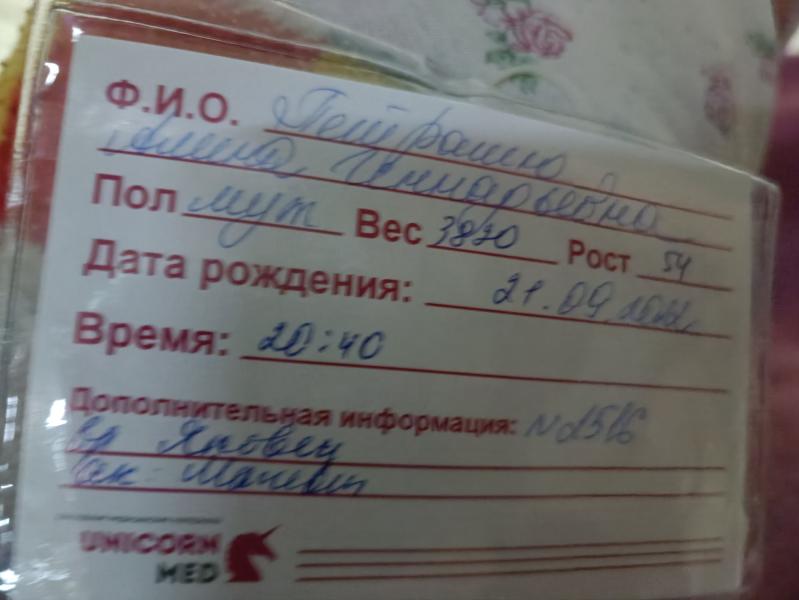 Ф.И.О. Петрашко
Алина Геннадьевна
Пол муж Вес 3820 Рост 54
Дата рождения: 21.09.
Время: 20:40
Дополнительная информация: N 2516
Вр Яковец
Ак.
UNICORN
MED